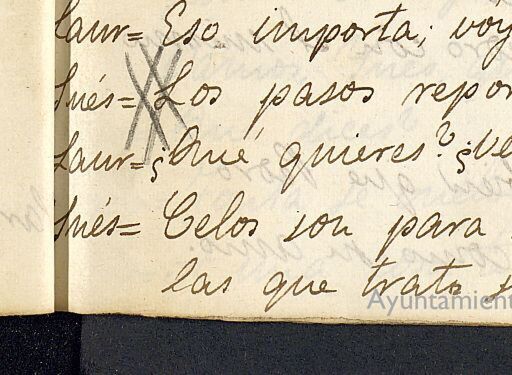 Laur= Eso importa; voy
Inés= Los pasos repor
Laur= ¿Qué quieres? ¿Ve
Inés= Celos son para
las que trato
Ayuntamient